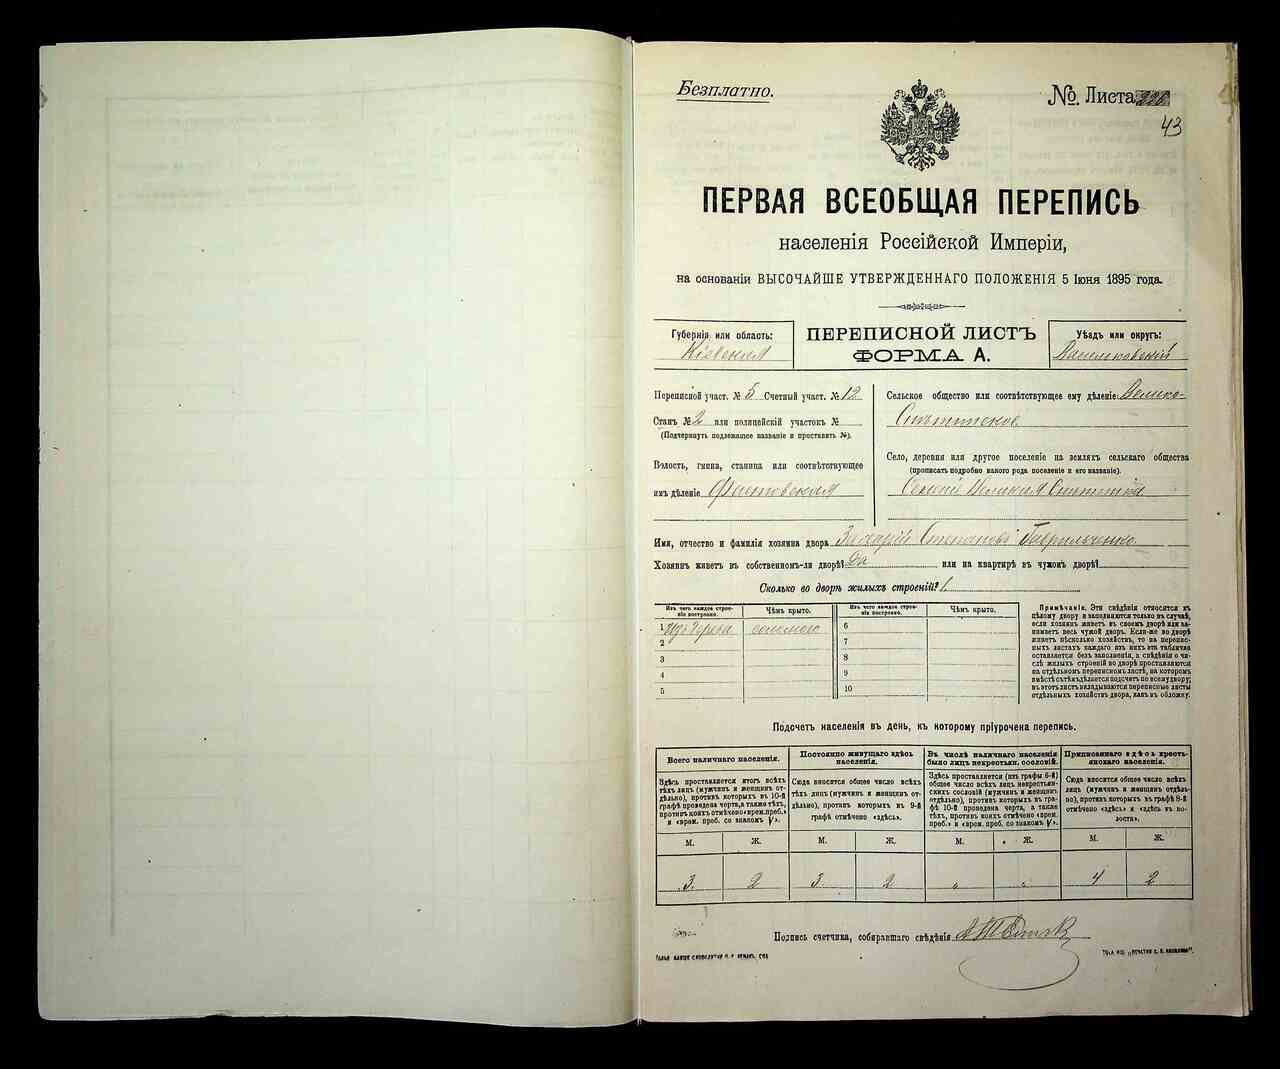 Безплатно.
№. Листа
43
ПЕРВАЯ ВСЕОБЩАЯ ПЕРЕПИСЬ
населенія Россійской Имперіи,
на основаніи ВЫСОЧАЙШЕ УТВЕРЖДЕННАГО ПОЛОЖЕНІЯ 5 Іюня 1895 года.
Губернія или область:
Кіевская
ПЕРЕПИСНОЙ ЛИСТЪ
ФОРМА А.
Уѣздъ или округъ:
Васильковскій
Переписной участ. № 5 Счетный участ. № 12
Станъ № 2 или полицейскій участокъ №
(Подчеркнуть подлежащее названіе и проставить №).
Волость, гмина, станица или соотвѣтствующее
имъ дѣленіе Фастовская
Сельское общество или соотвѣтствующее ему дѣленіе: Велико-
Снѣтинское
Село, деревня или другое поселеніе на земляхъ сельскаго общества
(прописать подробно какого рода поселеніе и его названіе).
Великая Снѣтинка
Имя, отчество и фамилія хозяина двора Захарій Степановъ Гаврильченко.
Хозяинъ живетъ въ собственномъ-ли дворѣ? Да или на квартирѣ въ чужомъ дворѣ?
Сколько во дворѣ жилыхъ строеній? 1.
Изъ чего каждое строе-
ніе построено.
Чѣмъ крыто.
Изъ чего каждое строе-
ніе построено.
Чѣмъ крыто.
1 Изъ дерева соломою
2
3
4
5
6
7
8
9
10
Примѣчанія. Эти свѣдѣнія относятся къ
цѣлому двору и заполняются только въ случаѣ,
если хозяинъ живетъ въ своемъ дворѣ или за-
нимаетъ весь чужой дворъ. Если-же во дворѣ
живетъ нѣсколько хозяйствъ, то на перепис-
ныхъ листахъ каждаго изъ нихъ эта табличка
оставляется безъ заполненія, а свѣдѣнія о чи-
слѣ жилыхъ строеній во дворѣ проставляются
на отдѣльномъ переписномъ листѣ, на которомъ
вмѣстѣ съ тѣмъ дѣлается подсчетъ по всему двору;
въ этотъ листъ вкладываются переписные листы
отдѣльныхъ хозяйствъ двора, какъ въ обложку.
Подсчетъ населенія въ день, къ которому пріурочена перепись.
Всего наличнаго населенія.
Здѣсь проставляется итогъ всѣхъ
тѣхъ лицъ (мужчинъ и женщинъ от-
дѣльно), противъ которыхъ въ 10-й
графѣ проведена черта, а также тѣхъ,
противъ коихъ отмѣчено «врем. преб.»
и «врем. преб. со знакомъ V».
Постоянно живущаго здѣсь
населенія.
Сюда вносится общее число всѣхъ
тѣхъ лицъ (мужчинъ и женщинъ от-
дѣльно), противъ которыхъ въ 9-й
графѣ отмѣчено «здѣсь».
Въ числѣ наличнаго населенія
было лицъ некрестьян. сословій.
Здѣсь проставляется (изъ графы 6-й)
общее число всѣхъ лицъ некрестьян-
скихъ сословій (мужчинъ и женщинъ
отдѣльно), противъ которыхъ въ гра-
фѣ 10-й проведена черта, а также
тѣхъ, противъ коихъ отмѣчено «врем.
преб.» и «врем. преб. со знакомъ V».
Приписаннаго здѣсь кресть-
янскаго населенія.
Сюда вносится общее число всѣхъ
лицъ (мужчинъ и женщинъ отдѣль-
но), противъ которыхъ въ графѣ 8-й
отмѣчено «здѣсь» и «здѣсь въ во-
лости».
М. Ж. М. Ж. М. Ж. М. Ж.
3 2 3 2 „ „ 4 2
Подпись счетчика, собиравшаго свѣдѣнія